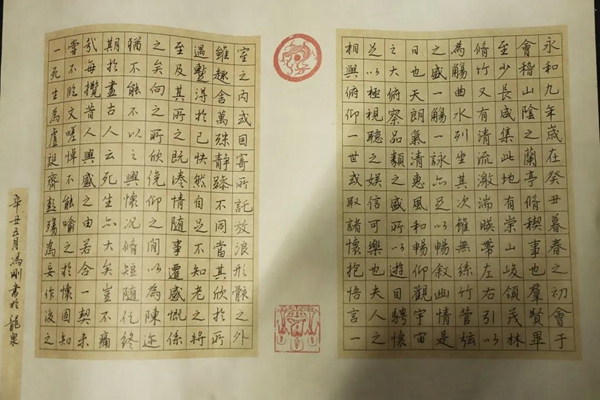 永和九年歲在癸丑暮春之初會于
會稽山陰之蘭亭脩稧事也羣賢畢
至少長咸集此地有崇山峻領茂林
脩竹又有清流激湍暎帶左右引以
為觴曲水列坐其次雖無絲竹管弦
之盛一觴一詠亦足以暢叙幽情是
日也天朗氣清惠風和暢仰觀宇宙
之大俯察品類之盛所以遊目騁懷
足以極視聽之娛信可樂也夫人之
相與俯仰一世或取諸懷抱悟言一
室之內或因寄所託放浪形骸之外
雖趣舍萬殊靜躁不同當其欣於所
遇蹔得於己快然自足不知老之將
至及其所之既惓情隨事遷感慨係
之矣向之所欣俛仰之間以為陳迹
猶不能不以之興懷況脩短隨化終
期於盡古人云死生亦大矣豈不痛
哉每攬昔人興感之由若合一契未
嘗不臨文嗟悼不能喻之於懷固知
一死生為虛誕齊彭殤為妄作後之
辛丑五月馮剛書於龍泉